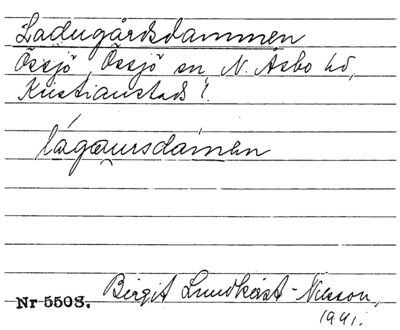 Ladugårdsdammen
Össjö, Össjö sn, N. Åsbo hd,
Kristianstads l.
lágaursdámən
Birgit Lundkvist-Nilsson,
Nr 5508.
1941.